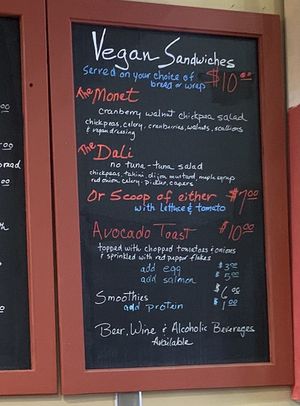 Vegan Sandwiches
Served on your choice of $10.00
bread or wrap
The Monet
cranberry walnut chickpea salad
chickpeas, celery, cranberries, walnuts, scallions
& vegan dressing
The Dali
no tuna-tuna salad
chickpeas, tahini, dijon mustard, maple syrup
red onion, celery, pickles, capers
Or Scoop of either $7.00
with lettuce & tomato
Avocado Toast $10.00
topped with chopped tomatoes & onions
& sprinkled with red pepper flakes
add egg $3.00
add salmon $5.00
Smoothies $6.00
add protein $1.00
Beer, Wine & Alcoholic Beverages
Available